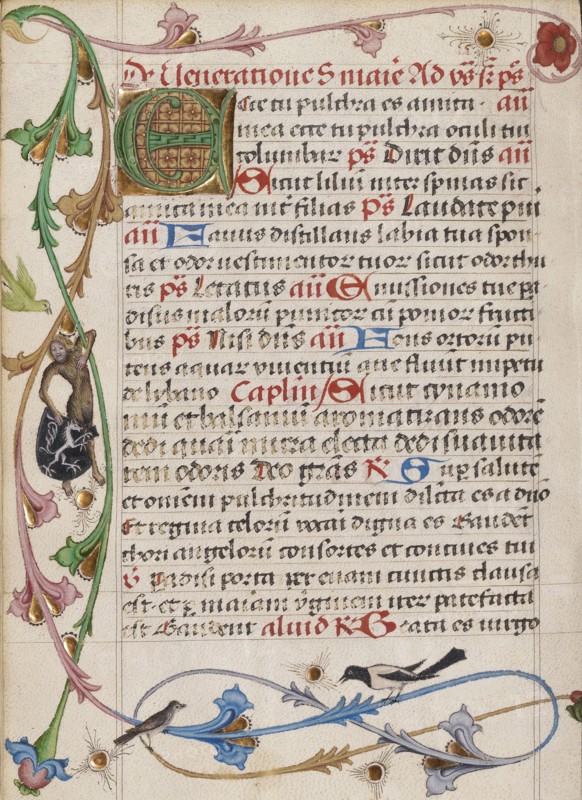 De Veneratione S maīe Ad vs̄ p̄r ps̄
Ecce tu pulchra es amica · an̄
mea ecce tu pulchra oculi tui
columbar ps̄ Dixit dn̄s an̄
Sicut liliū inter spinas sic
amica mea int̄ filias Ps̄ Laudate pu̅i
an̄ Fauus distillans labia tua spon
sa et odor vestimentor tuor sicut odor thu
ris ps̄ Letatus an̄ Emissiones tue pa
disus maloru̅ punicor cu̅ pomor fructi
bus ps̄ Nisi dn̄s an̄ Fons ortoru̅ pu
teus aquar viventiu̅ que fluu̅t impetu
de lybano Caplm̄ Sicut cynamo
mu̅ et balsamu̅ aromatizans odore̅
dedi quasi mirra electa dedi suavita
tem odoris Deo gr̄as R̄ Sup̱ salute̅
et omnem pulchritudinem dilc̄ta es a dn̄o
Et regina celoru̅ vocari digna es Gaude̅t
chori angeloru̅ consortes et concives tui
V̄ Padisi porta per evam cunctis clausa
est et p̱ mariam v̄ginem iteṟ patefacta
est Gaudent aliud R̄ Grata es virgo